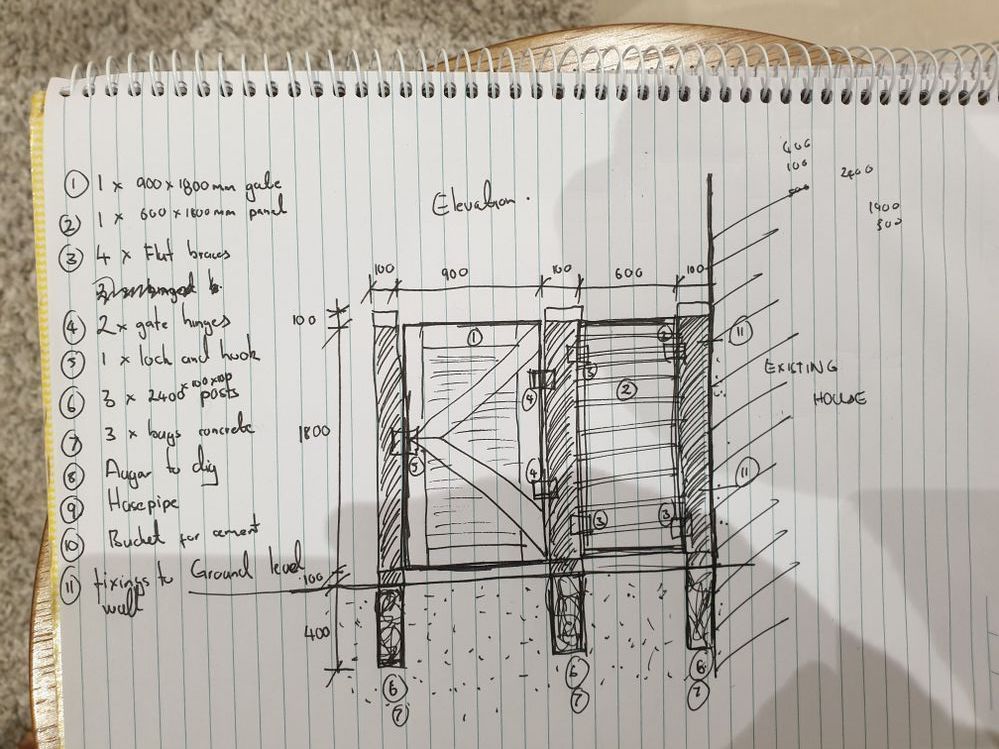 ① 1 x 900 x 1800mm gate
② 1 x 600 x 1800mm panel
③ 4 x Flat braces
④ 2 x gate hinges
⑤ 1 x lock and hook
⑥ 3 x 2400 x 100 x 100 posts
⑦ 3 x bags concrete
⑧ Augar to dig
⑨ Hosepipe
⑩ Bucket for cement
⑪ fixings to wall
Ground level
Elevation.
100 900 100 600 100
100
1800
100
400
①
②
③
③
③
③
④
④
⑤
⑥
⑦
⑥
⑦
⑥
⑦
⑪
⑪
EXISTING
HOUSE
400
100
500
2400
1900
500